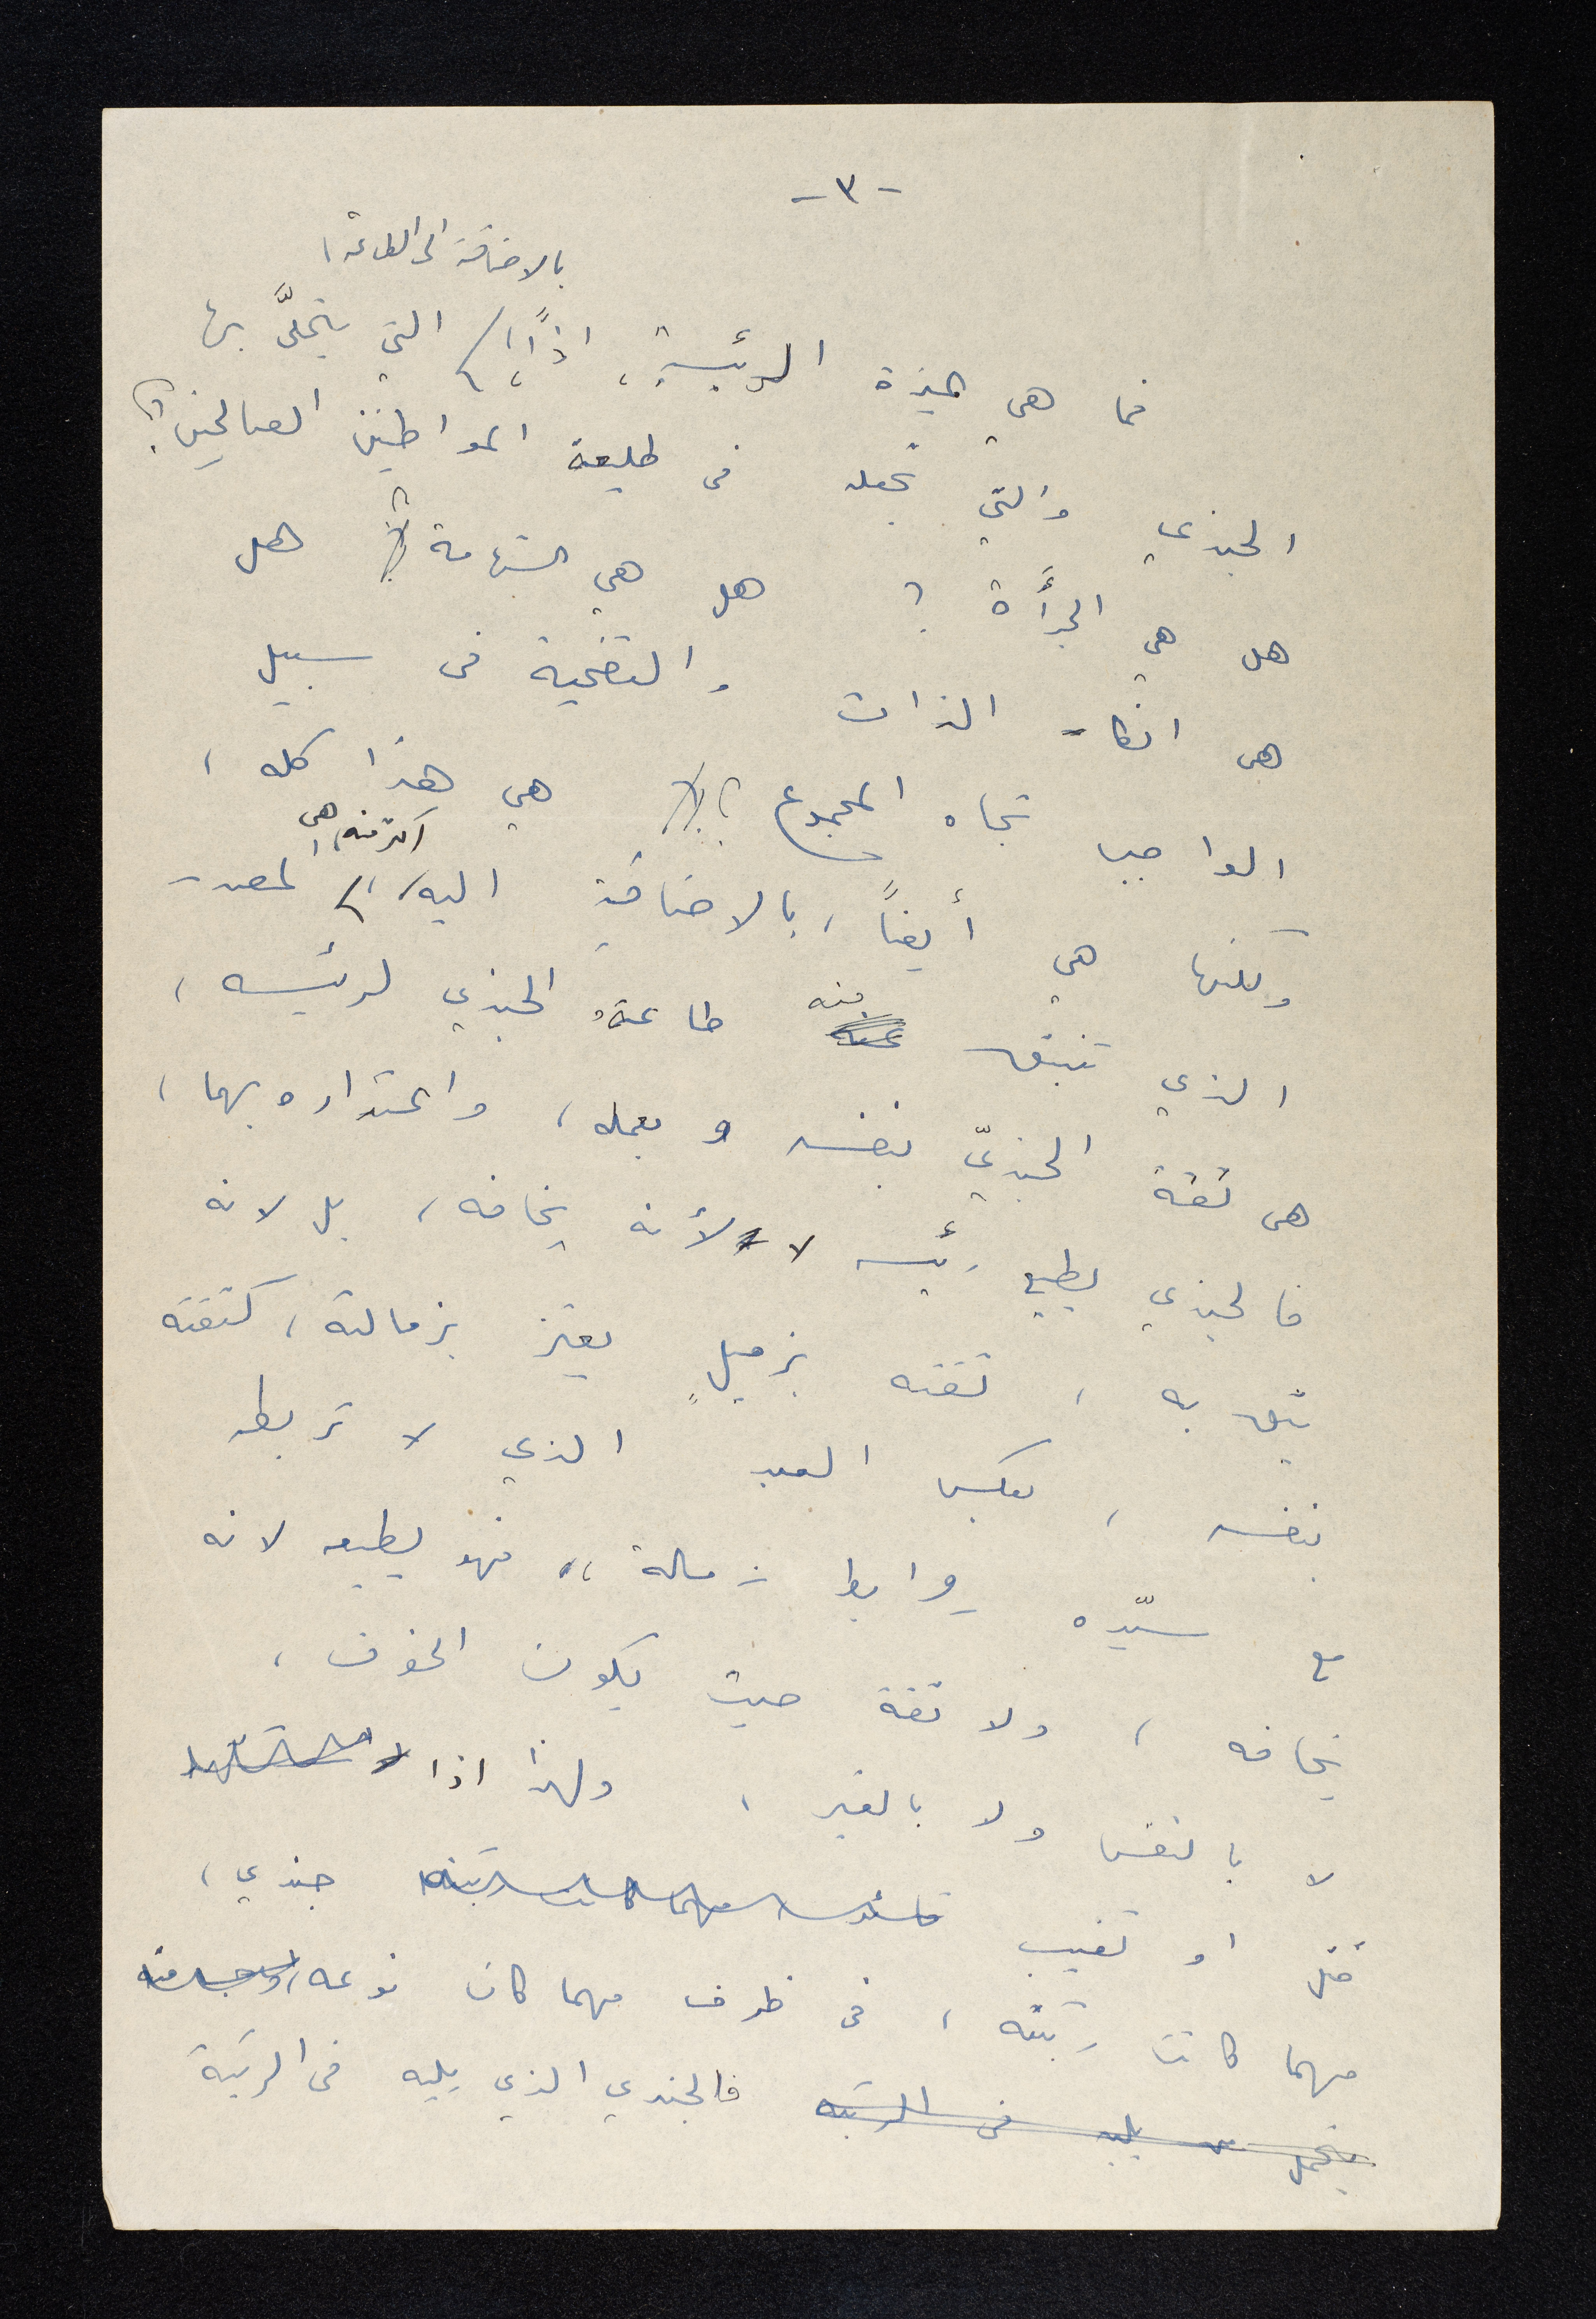 -٣-
بالاضافة الى الطاعة،
فما هي الميزة الرئيسية، اذاً، التي يتحلَّى بها
الجندي والتي تجعله في طليعة المواطنين الصالحين؟
هل هي الجرأة؟ هل هي الشهامة؟ هل
هي انكار الذات والتضحية في سبيل
الواجب تجاه المجموع؟ هي هذا كله،
ولكنها هي أيضاً، بالاضافة اليه، اكثر منه، هي المصدر
الذي تنبثق منه طاعة الجندي لرئيسه،
هي ثقة الجنديّ بنفسه وبعمله، واعتداره بهما،
فالجندي يطيع رئيسه لا لأنه يخافه، بل لانه
يثق به، ثقته بزميلٍ يعتز بزمالته، كثقته
بنفسه، بعكس العبد الذي لا تربطه
مع سيّده روابط زمالة، فهو يطيعه لانه
يخافه، ولا ثقة حيث يكون الخوف،
لا بالنفس ولا بالغير، ولهذا اذا
قتل او تغيب قائد مهما كانت رتبته جندي،
مهما كانت رتبته، في ظرف مهما كان نوعه،
من يليه في الرتبة فالجندي الذي يليه في الرتبة